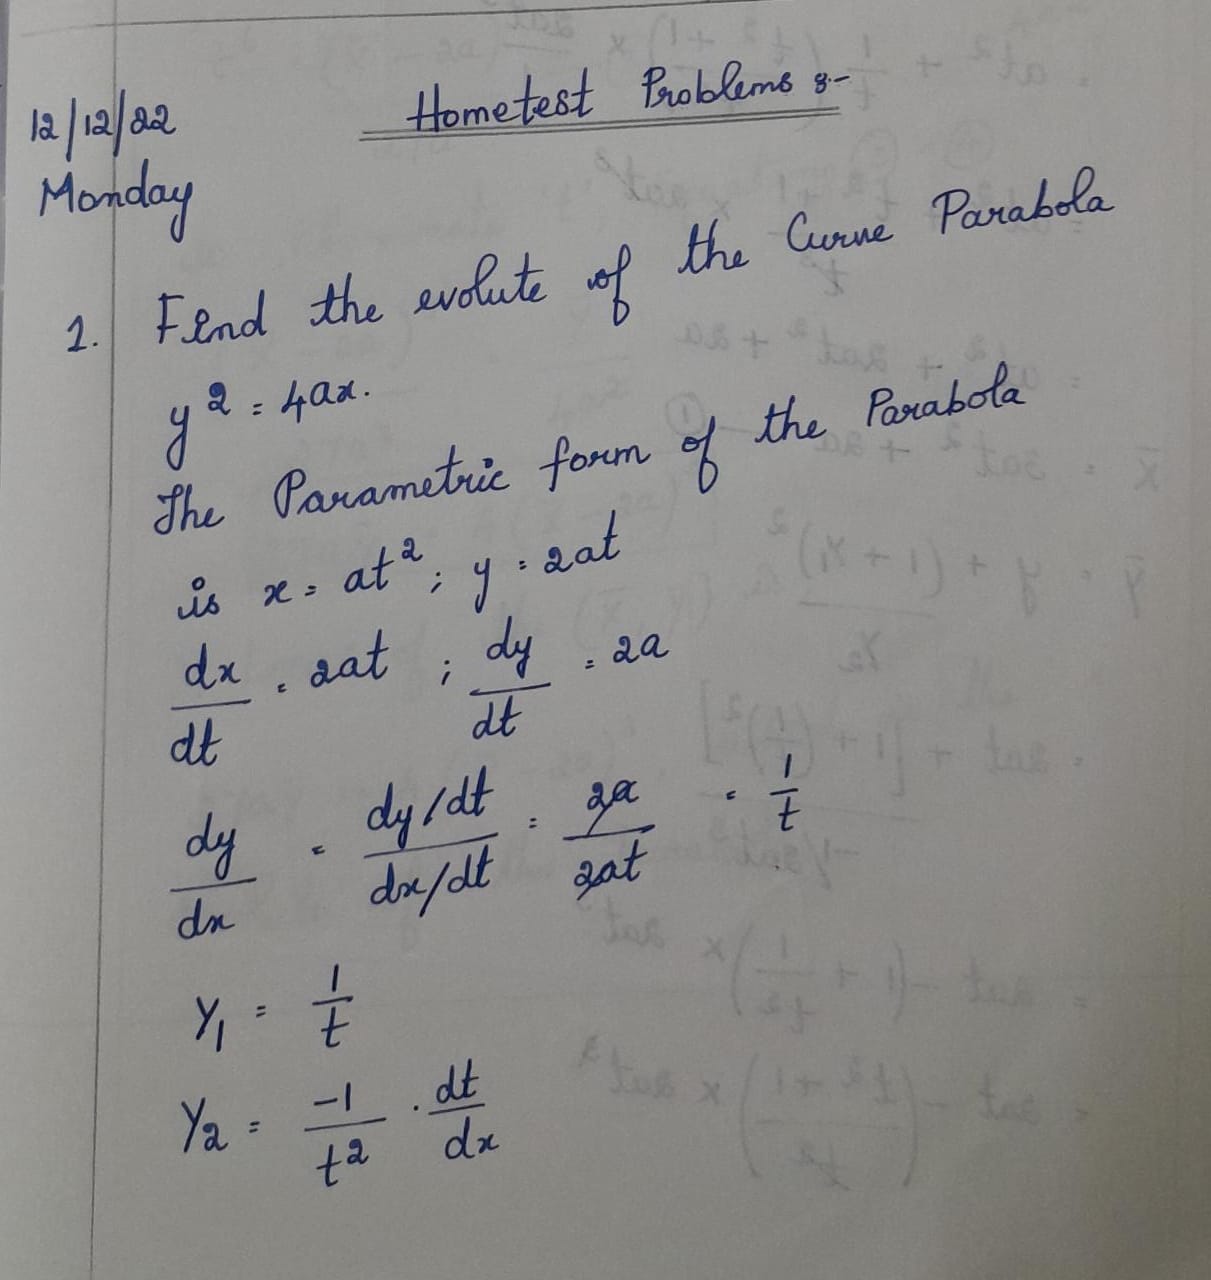 12/12/22
Hometest Problems :-
Monday
1. Find the evolute of the Curve Parabola
y² = 4ax.
The Parametric form of the Parabola
is x = at² ; y = 2at
dx/dt = 2at ; dy/dt = 2a
dy/dx = (dy/dt)/(dx/dt) = 2a/2at = 1/t
Y₁ = 1/t
Y₂ = -1/t² . dt/dx